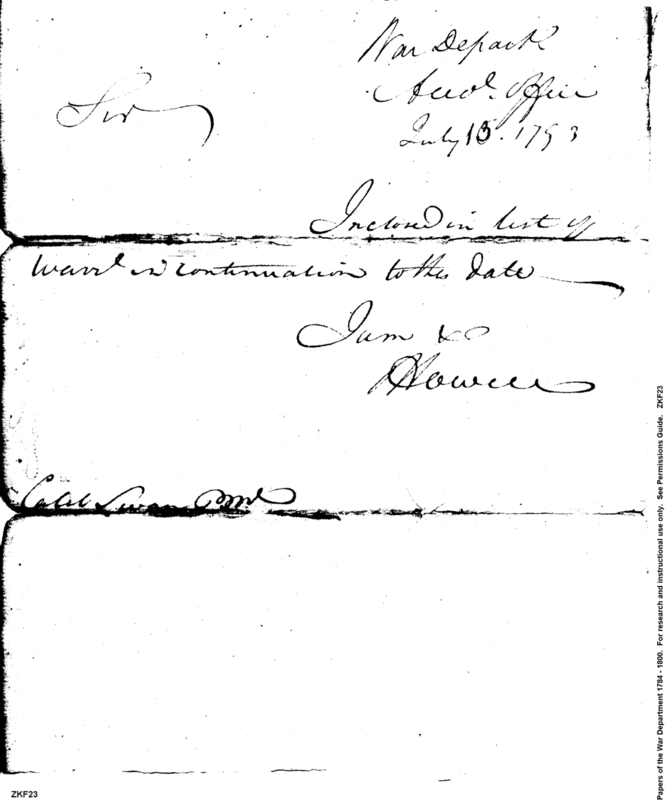 War Depart
Accot. Office
July 15. 1793
Sir
Inclosed is list of
warrts in continuation to this date
I am &c
J Howell
Caleb Swan PM
Papers of the War Department 1784 - 1800. For research and instructional use only. See Permissions Guide. ZKF23
ZKF23